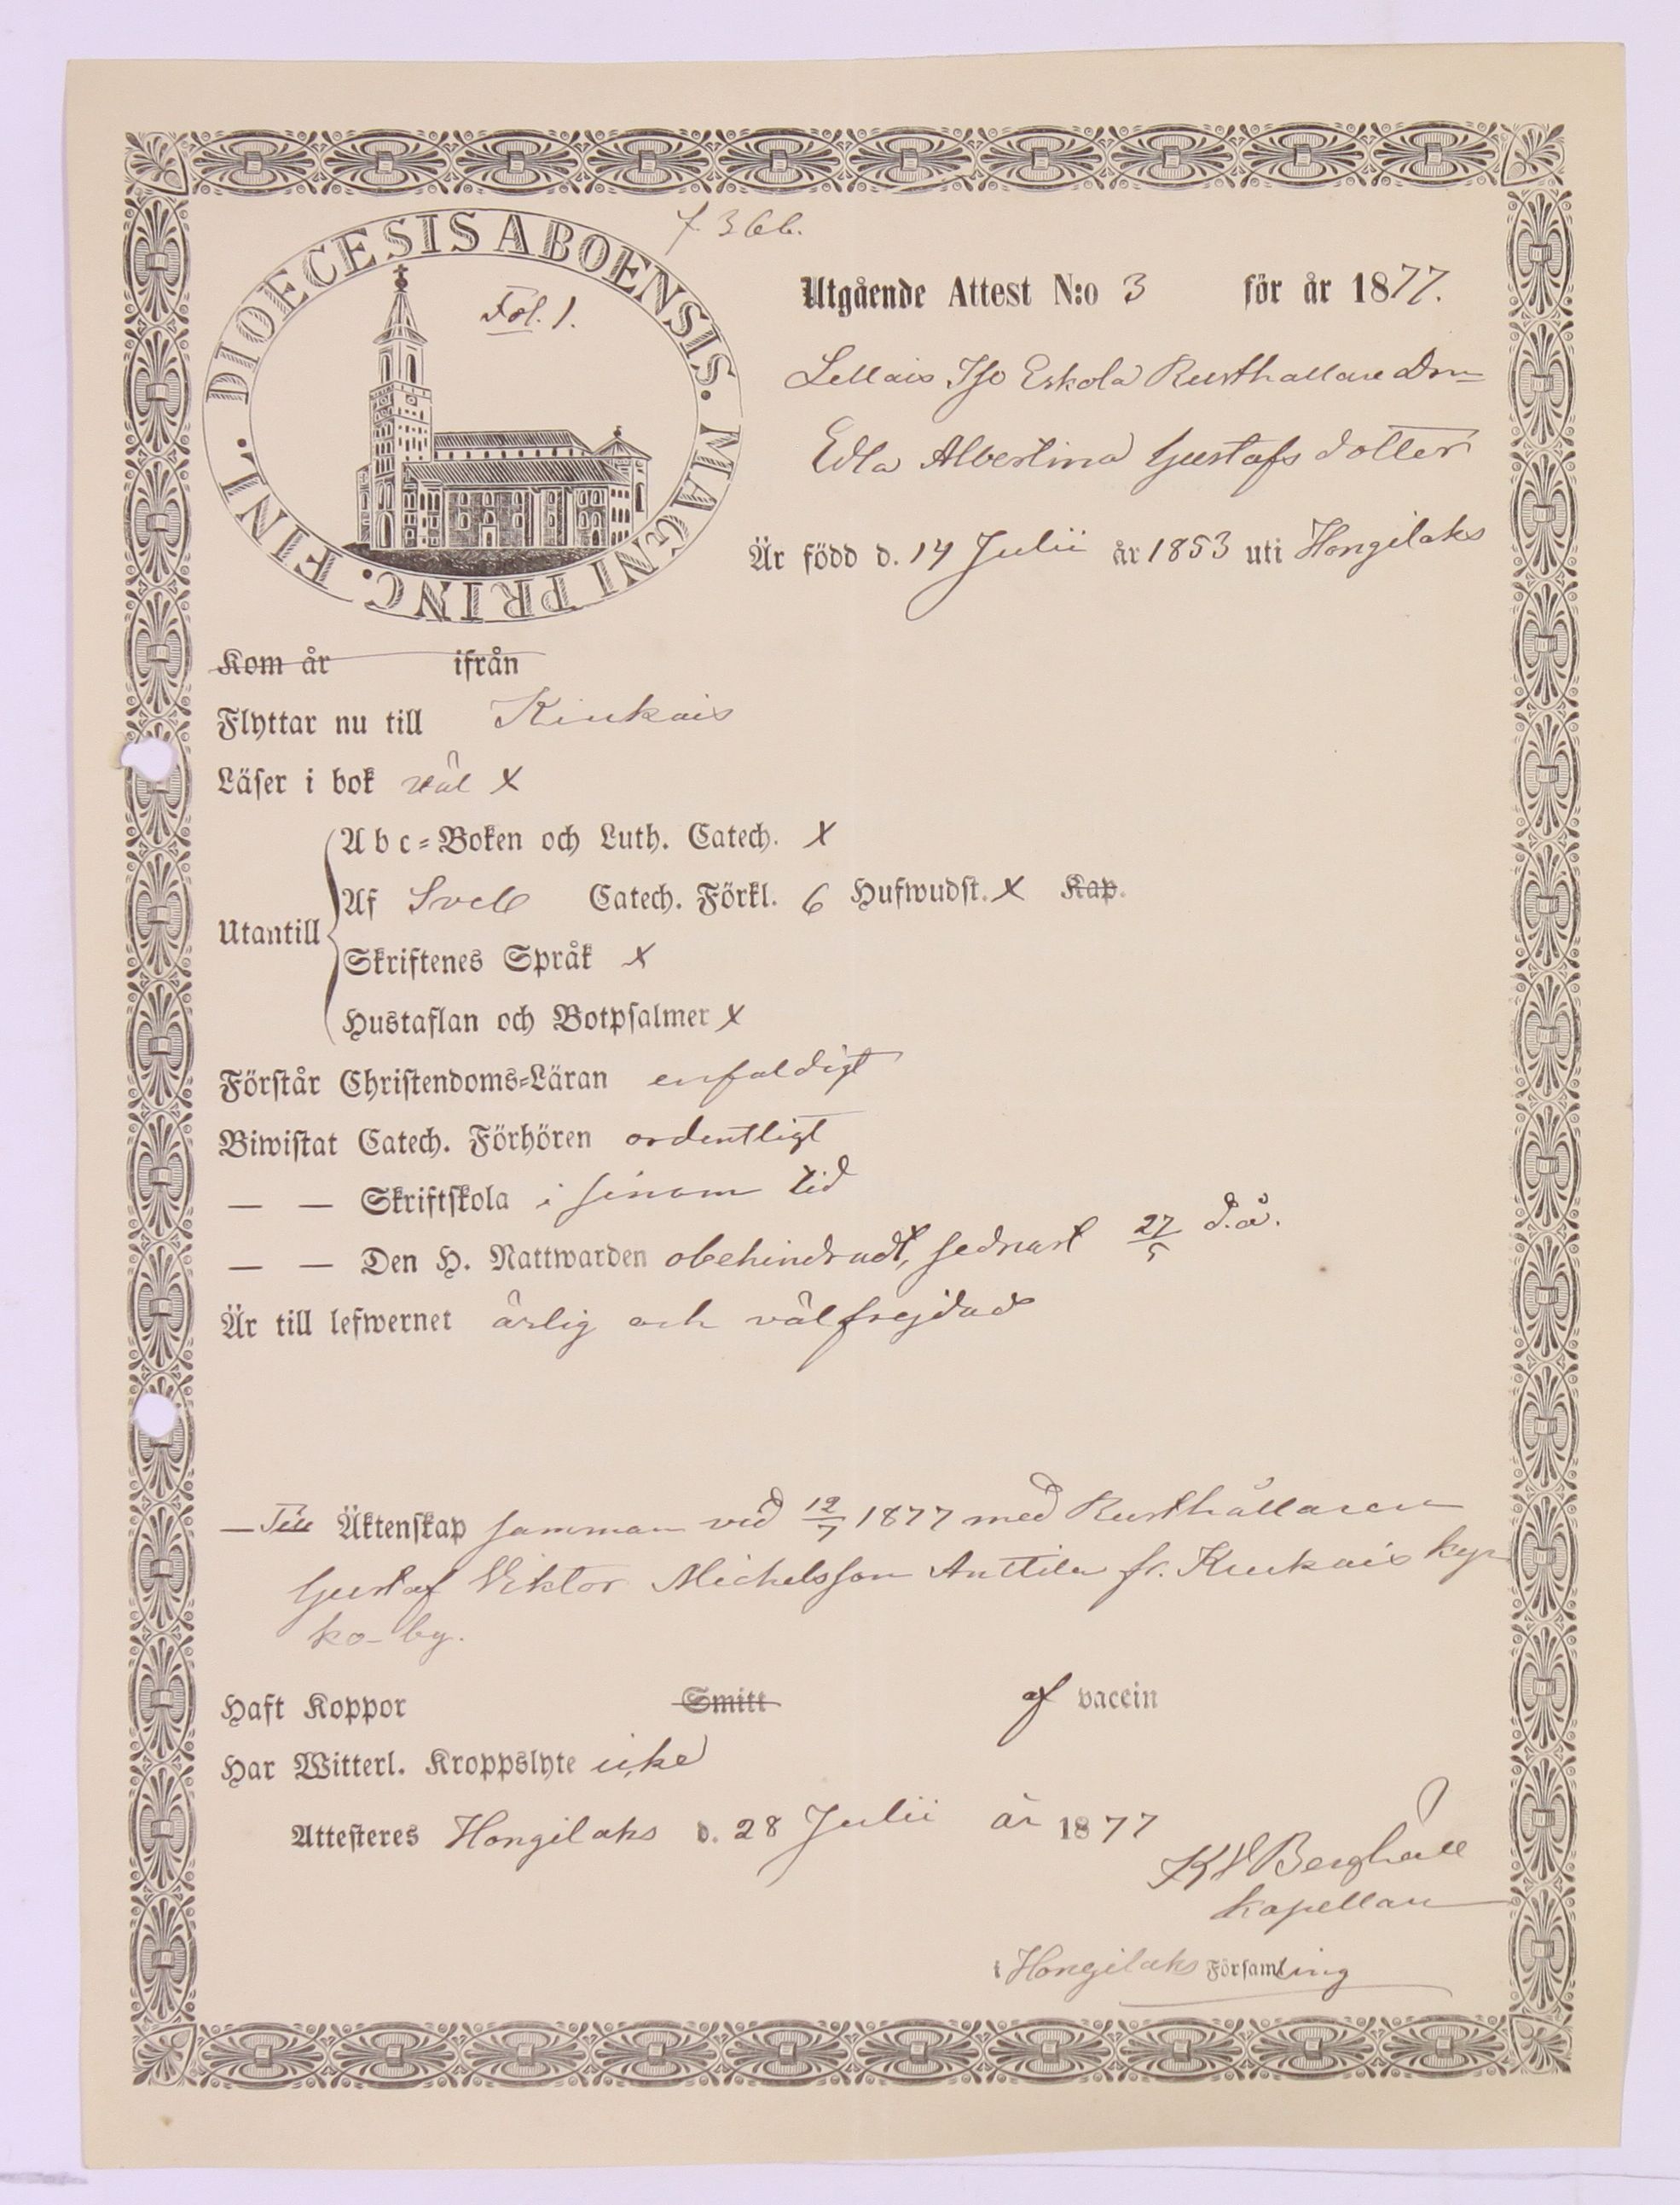 DIOECESIS ABOENSIS. MAGNI PRINC. FINL.
Fol. 1.
f 366.
Utgående Attest N:o 3 för år 1877.
Lellais Iso Eskola Rusthållare Drn
Edla Albertina Gustafs dotter
Är född d. 14 Julii år 1853 uti Hongilaks
Kom år ifrån
Flyttar nu till Kiukais
Läser i bok väl x
Utantill
Abc-Boken och Luth. Catech. x
Af Sveb Catech. Förkl. 6 Hufwudst. x Kap.
Skriftenes Språk x
Hustaflan och Botpsalmer x
Förstår Christendoms-Läran enfaldigt
Biwistat Catech. Förhören ordentligt
— — Skriftskola i sinom tid
— — Den H. Nattwarden obehindradt, sednast 27/5 d.å.
Är till lefwernet ärlig och välfrejdad
— Till Äktenskap samman vid 12/7 1877 med Rusthållaren
Gustaf Viktor Michelsson Anttila fr. Kiukais kyr
ko-by.
Haft Koppor Smitt af vaccin
Har Witterl. Kroppslyte icke
Attesteres Hongilaks d. 28 Julii år 1877
KV Berghäll
Kapellan
i Hongilaks Församling